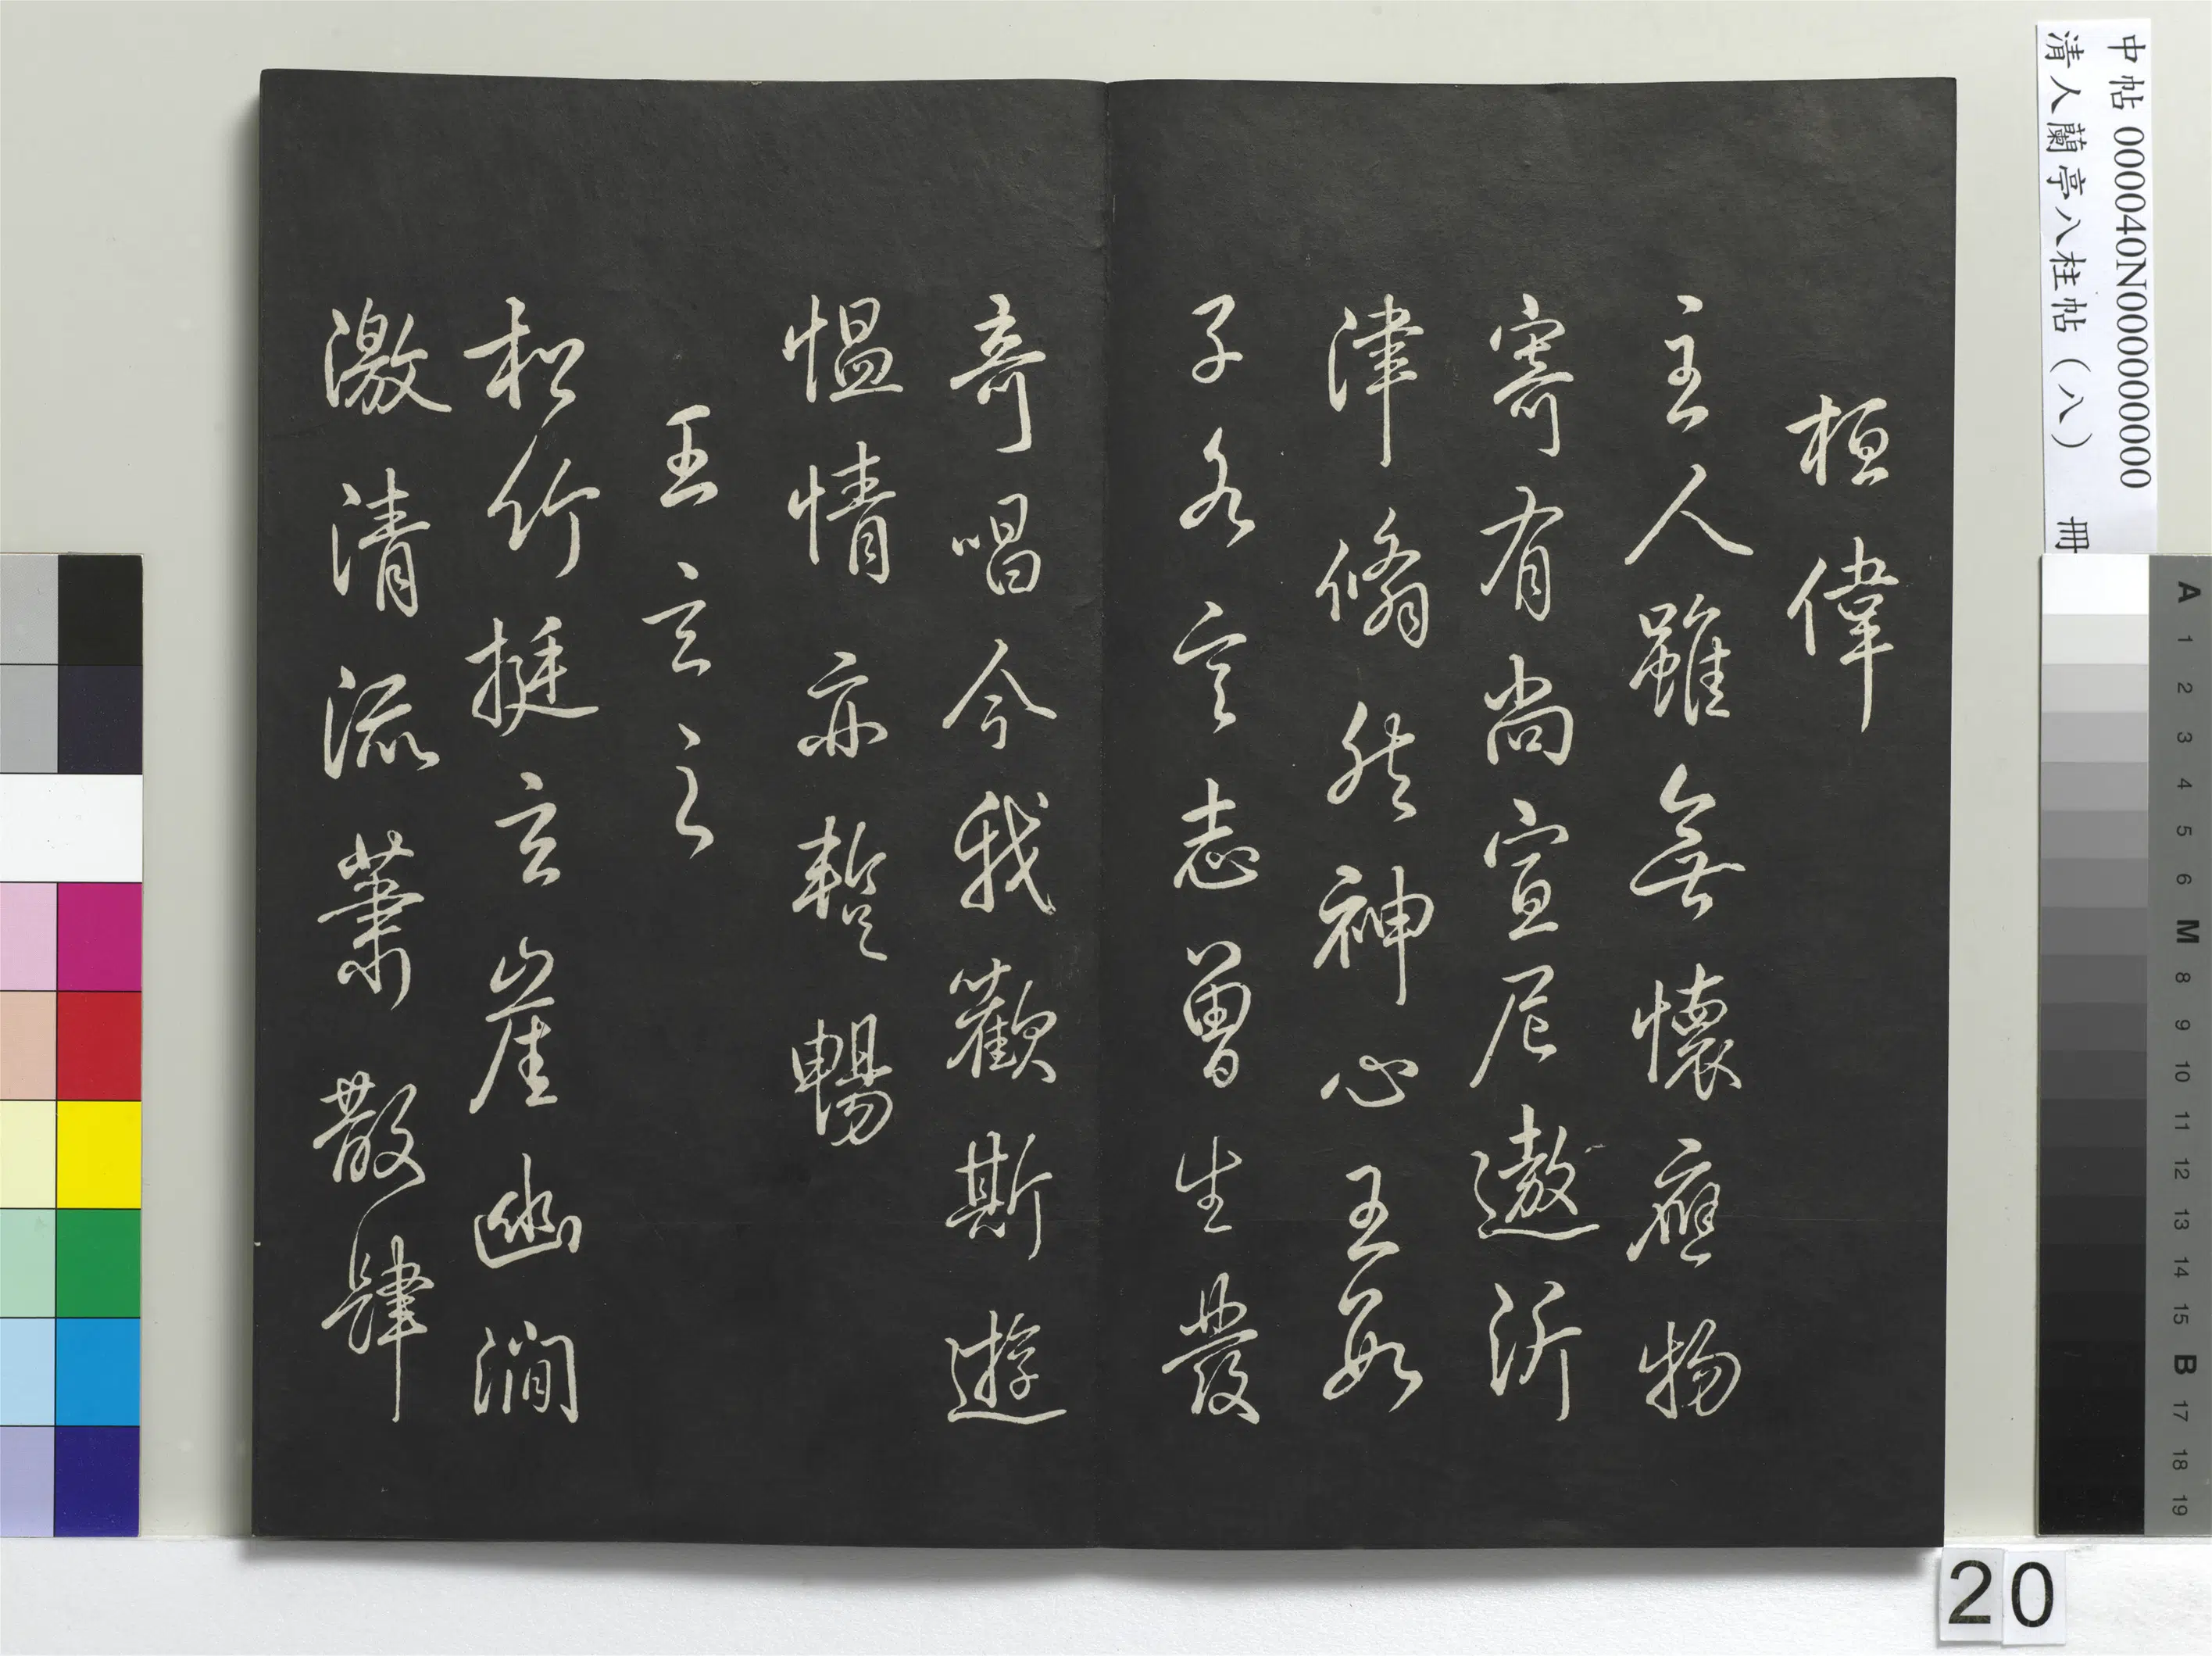 中帖 000040N000000000
清人蘭亭八柱帖(八) 冊
桓偉
主人雖無懷應物
寄有尚宣尼遨沂
津翛然神心王數
子各言志曾生發
奇唱今我歡斯遊
愠情亦暫暢
王玄之
松竹挺玄崖幽澗
激清流蕭散肆
A
1
2
3
4
5
6
M
8
9
10
11
12
13
14
15
B
17
18
19
20